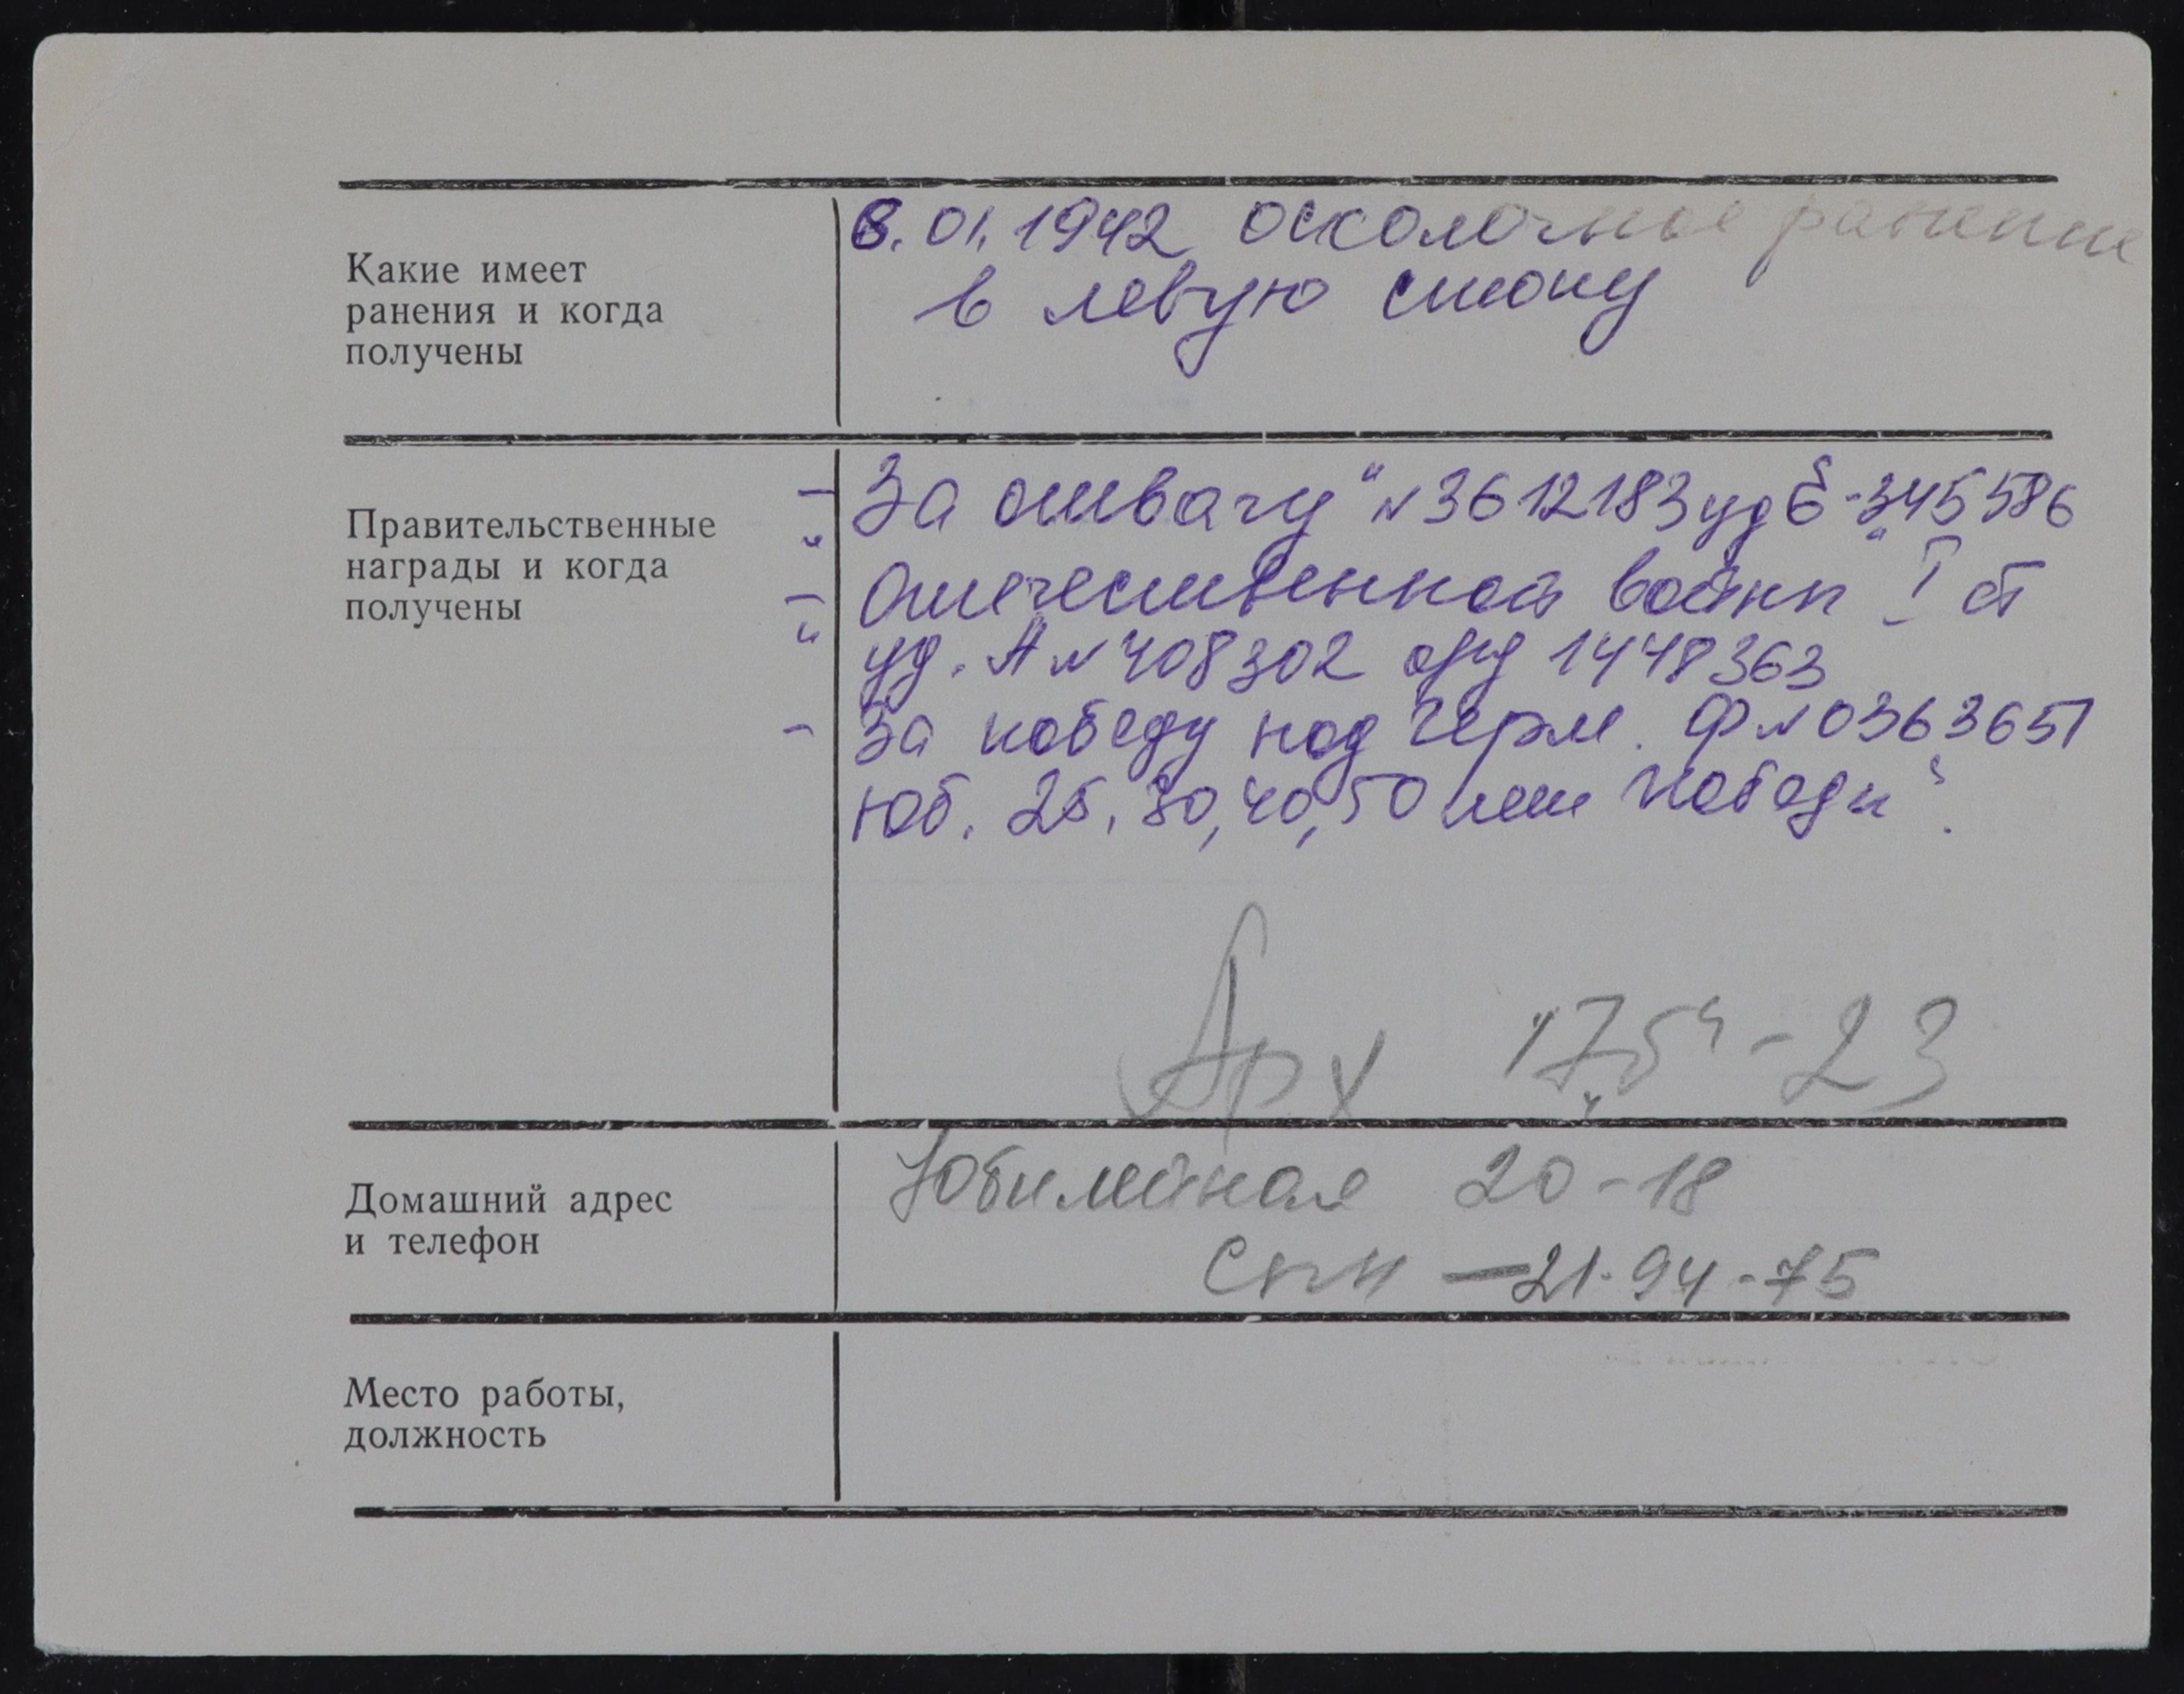 Какие имеет
ранения и когда
получены
8.01.1942 осколочное ранение
в левую стопу
Правительственные
награды и когда
получены
- „За отвагу" N 3612183 уд Б-345586
- „Отечественной войны" I ст
уд. А N 408302 орд 1448363
- За победу над Герм. Ф N 0363651
Юб. 25, 30, 40, 50 лет Победы".
Арх
Домашний адрес
и телефон
Юбилейная 20-18
21-94-75
Место работы,
должность